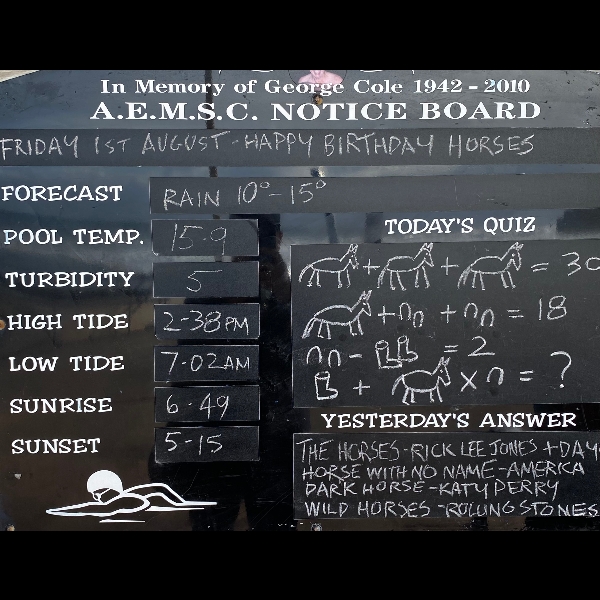 In Memory of George Cole 1942 - 2010
A.E.M.S.C. NOTICE BOARD
FRIDAY 1ST AUGUST - HAPPY BIRTHDAY HORSES
FORECAST RAIN 10° - 15°
POOL TEMP. 15.9
TURBIDITY 5
HIGH TIDE 2-38PM
LOW TIDE 7-02AM
SUNRISE 6-49
SUNSET 5-15
TODAY'S QUIZ
+ + = 30
+ + = 18
- = 2
+ × = ?
YESTERDAY'S ANSWER
THE HORSES - RICK LEE JONES + DAY
HORSE WITH NO NAME - AMERICA
DARK HORSE - KATY PERRY
WILD HORSES - ROLLING STONES